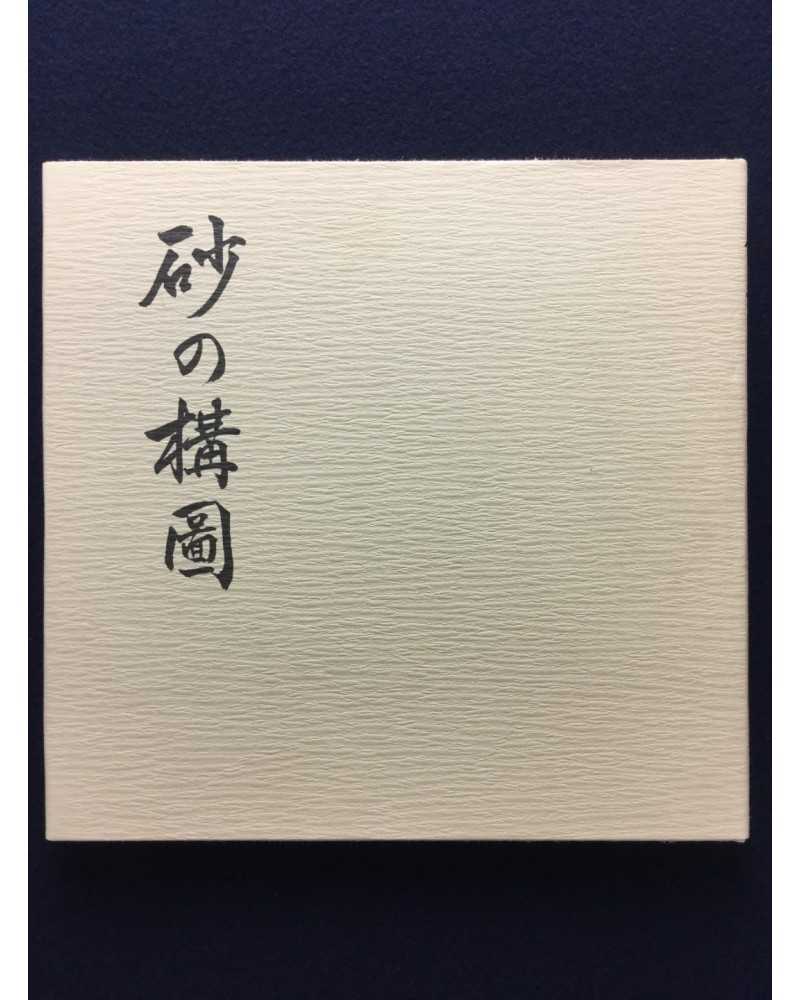 砂の構圖